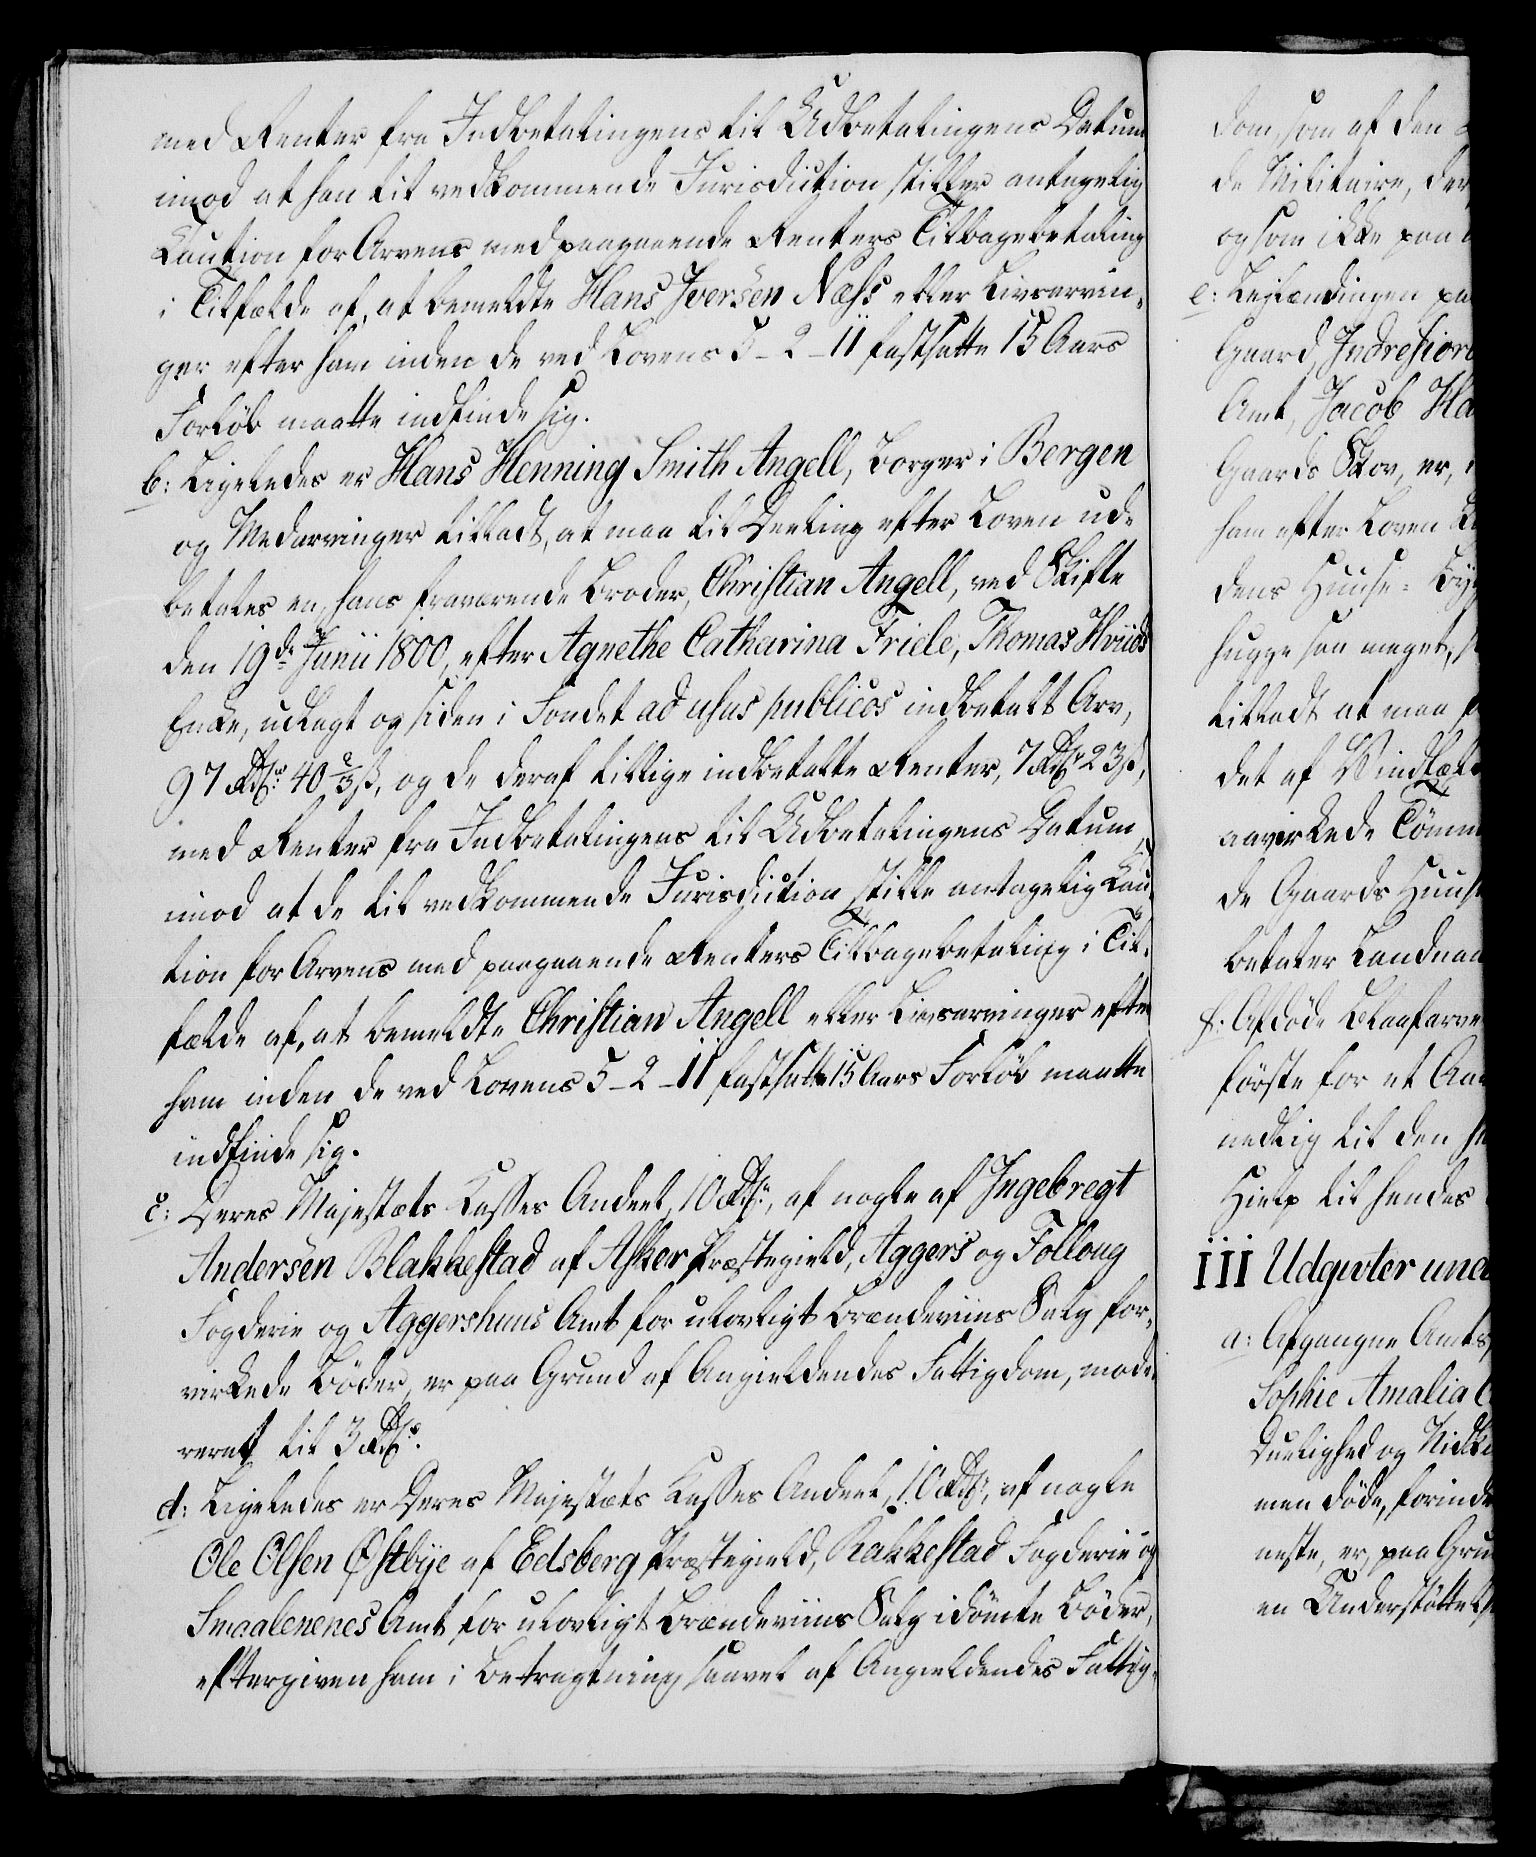 med Renter fra Indbetalingens til Udbetalingens Datum
imod at han til vedkommende Jurisdiction stiller antagelig
Caution for Arvens med paagaaende Renters Tilbagebetaling
i Tilfælde af, at bemeldte Hans Iversen Næss eller Livsarvin-
ger efter ham inden de ved Lovens 5-2-11 fastsatte 15 Aars
Forløb maatte indfinde sig.
b: Ligeledes er Hans Henning Smith Angell, Borger i Bergen
og Medarvinger tilladt, at maa til Deeling efter Loven ud-
betales en, hans fraværende Broder, Christian Angell, ved Skifte
den 19de Junii 1800, efter Agnethe Catharina Friele, Thomas Hviids
Enke, udlagt og siden i Fondet ad usus publicos indbetalt Arv,
97 Rdlr 40 2/3 s, og de deraf tillige indbetalte Renter, 7 Rdlr 23 s,
med Renter fra Indbetalingens til Udbetalingens Datum,
imod at de til vedkommende Jurisdiction stille antagelig Cau-
tion for Arvens med paagaaende Renters Tilbagebetaling i Til-
fælde af, at bemeldte Christian Angell eller Livsarvinger efter
ham inden de ved Lovens 5-2-11 fastsatte 15 Aars Forløb maatte
indfinde sig.
c: Deres Majestæts Kasses Andeel, 10 Rdlr, af nogle af Ingebregt
Andersen Blakkestad af Asker Præstegield, Aggers og Follong
Fogderie og Aggershuus Amt for ulovligt Brændeviins Salg for-
virkede Bøder, er paa Grund af Angieldendes Fattigdom, mode-
reret til 3 Rdlr.
d: Ligeledes er Deres Majestæts Kasses Andeel, 10 Rdlr, af nogle
Ole Olsen Østbye af Edsberg Præstegield, Rakkestad Fogderie og
Smaalenenes Amt for ulovligt Brændeviins Salg idømte Bøder,
eftergiven ham i Betragtning saavel af Angieldendes Fattig-
dom, som af den
de Militaire, der
og som ikke paa
e: Leilændingen paa
Gaard, Indrefiord
Amt, Jacob Ha
Gaards Skov, er,
ham efter Loven
dens Huuse-Byg
hugge saa meget,
tilladt at maa
det af Vindfæl
aavirkede Tømm
de Gaards Huuse
betaler Landman
f: Afdøde Blaafarve
første for et Aar
nedlig til den
Hielp til hendes
iii Udgivter und
a: Afgangne Amts
Sophie Amalia
Duelighed og Nidk
men døde, forinde
neste, er, paa Gru
en Understøttels